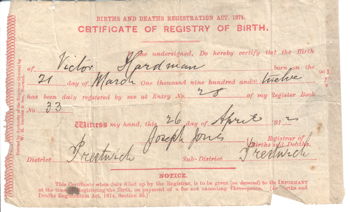 BIRTHS AND DEATHS REGISTRATION ACT, 1874.
CERTIFICATE OF REGISTRY OF BIRTH.
the undersigned, Do hereby certify that the Birth
of Victor Hardman born on the
21 day of March One thousand nine hundred and twelve
has been duly registered by me at Entry No. 28 of my Register Book
No. 33
Witness my hand, this 26 day of April 1912
Joseph Jones Registrar of
Births and Deaths.
District Prestwich Sub-District Prestwich
NOTICE.
This Certificate when duly filled up by the Registrar, is to be given (on demand) to the INFORMANT
at the time of registering the birth, on payment of a fee not exceeding Threepence. (Births and
Deaths Registration Act, 1874, Section 30.)